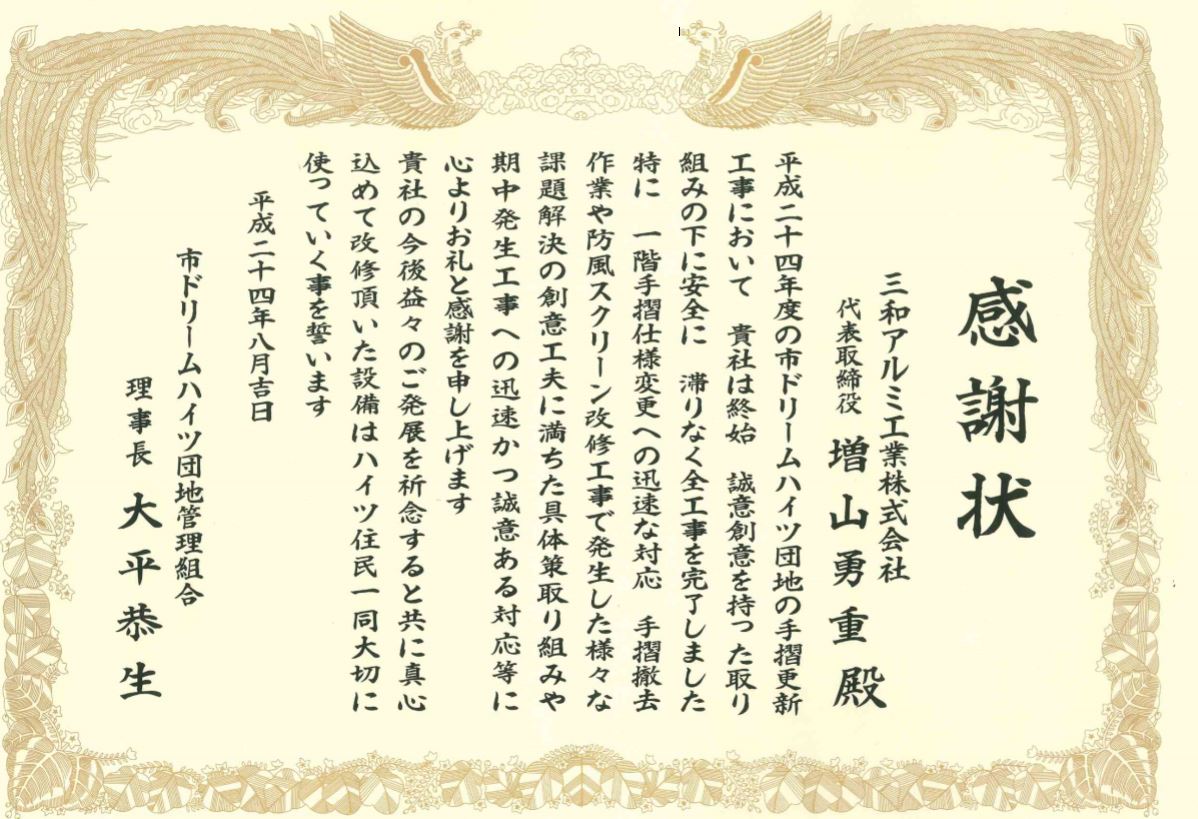 感謝状
三和アルミ工業株式会社
代表取締役 増山勇重殿
平成二十四年度の市ドリームハイツ団地の手摺更新
工事において 貴社は終始 誠意創意を持った取り
組みの下に安全に 滞りなく全工事を完了しました
特に 一階手摺仕様変更への迅速な対応 手摺撤去
作業や防風スクリーン改修工事で発生した様々な
課題解決の創意工夫に満ちた具体策取り組みや
期中発生工事への迅速かつ誠意ある対応等に
心よりお礼と感謝を申し上げます
貴社の今後益々のご発展を祈念すると共に真心
込めて改修頂いた設備はハイツ住民一同大切に
使っていく事を誓います
平成二十四年八月吉日
市ドリームハイツ団地管理組合
理事長 大平恭生